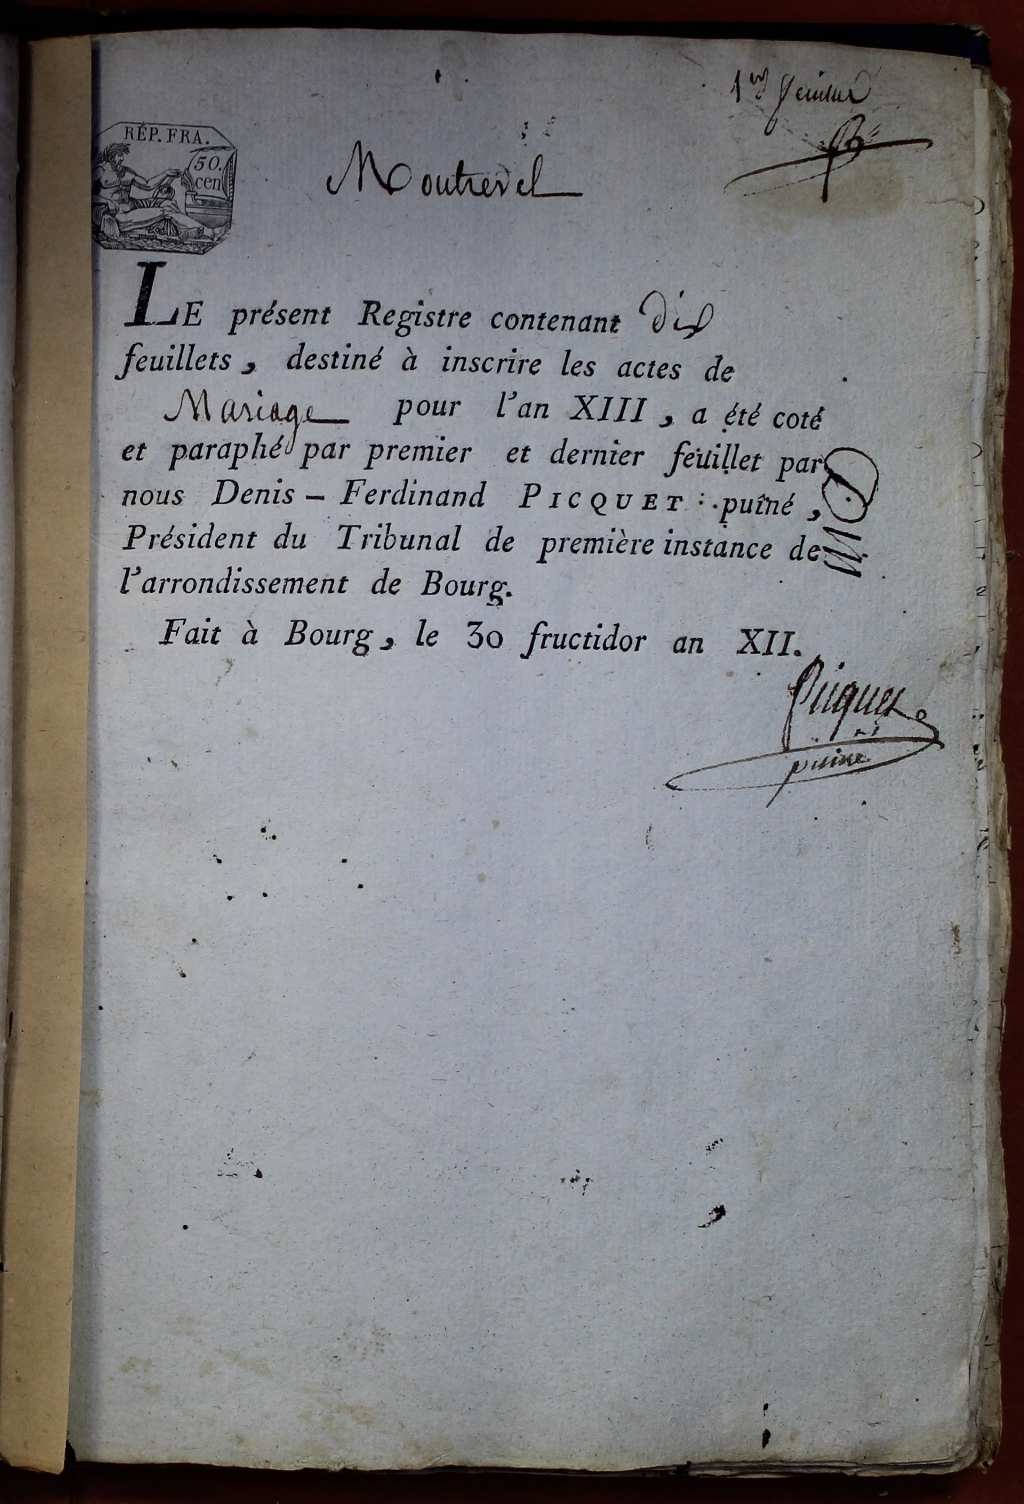 1er feuillet
RÉP. FRA.
50.
cen
Montrevel
LE présent Registre contenant dix
feuillets, destiné à inscrire les actes de
Mariage pour l'an XIII, a été coté
et paraphé par premier et dernier feuillet par
nous Denis – Ferdinand PICQUET puîné,
Président du Tribunal de première instance de
l'arrondissement de Bourg.
Fait à Bourg, le 30 fructidor an XII.
Picquet
puiné